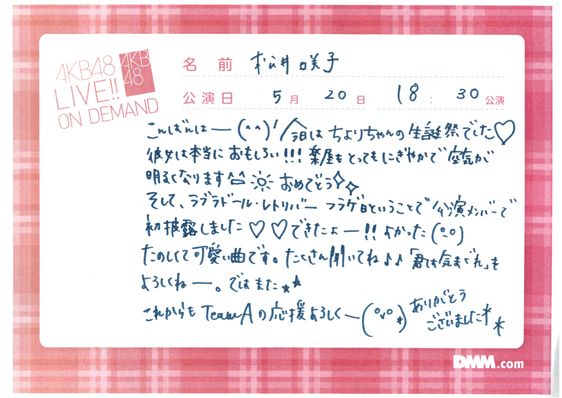 AKB48
LIVE!!
ON DEMAND
AKB
48
名前 松井咲子
公演日 5月20日 18:30公演
こんばんはー(^^)ノ今日はちよりちゃんの生誕祭でした♡
彼女は本当におもしろい!!!楽屋もとってもにぎやかで空気が
明るくなります おめでとう
そして、ラブラドール・レトリバー フラゲ日ということで公演メンバーで
初披露しました♡♡できたよー!!よかった(°o°)
たのしくて可愛い曲です。たくさん聞いてね♪♪「君は気まぐれ」も
よろしくねー。ではまた★★
これからもTeamAの応援よろしくー(°v°*)ありがとう
ございました**
DMM.com